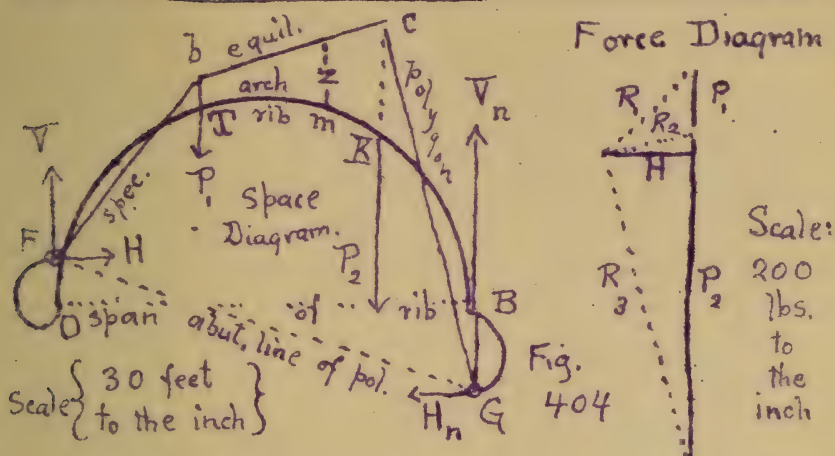 b equil. C
arch
rib
T
m
z
polygon
spec.
P1
K
V
F
H
Space
Diagram.
P2
Vn
O span of rib B
abut. line of pol.
Scale { 30 feet
to the inch }
Hn G
Fig.
404
Force Diagram
R1
R2
H
P1
R3
P2
Scale:
200
lbs.
to
the
inch